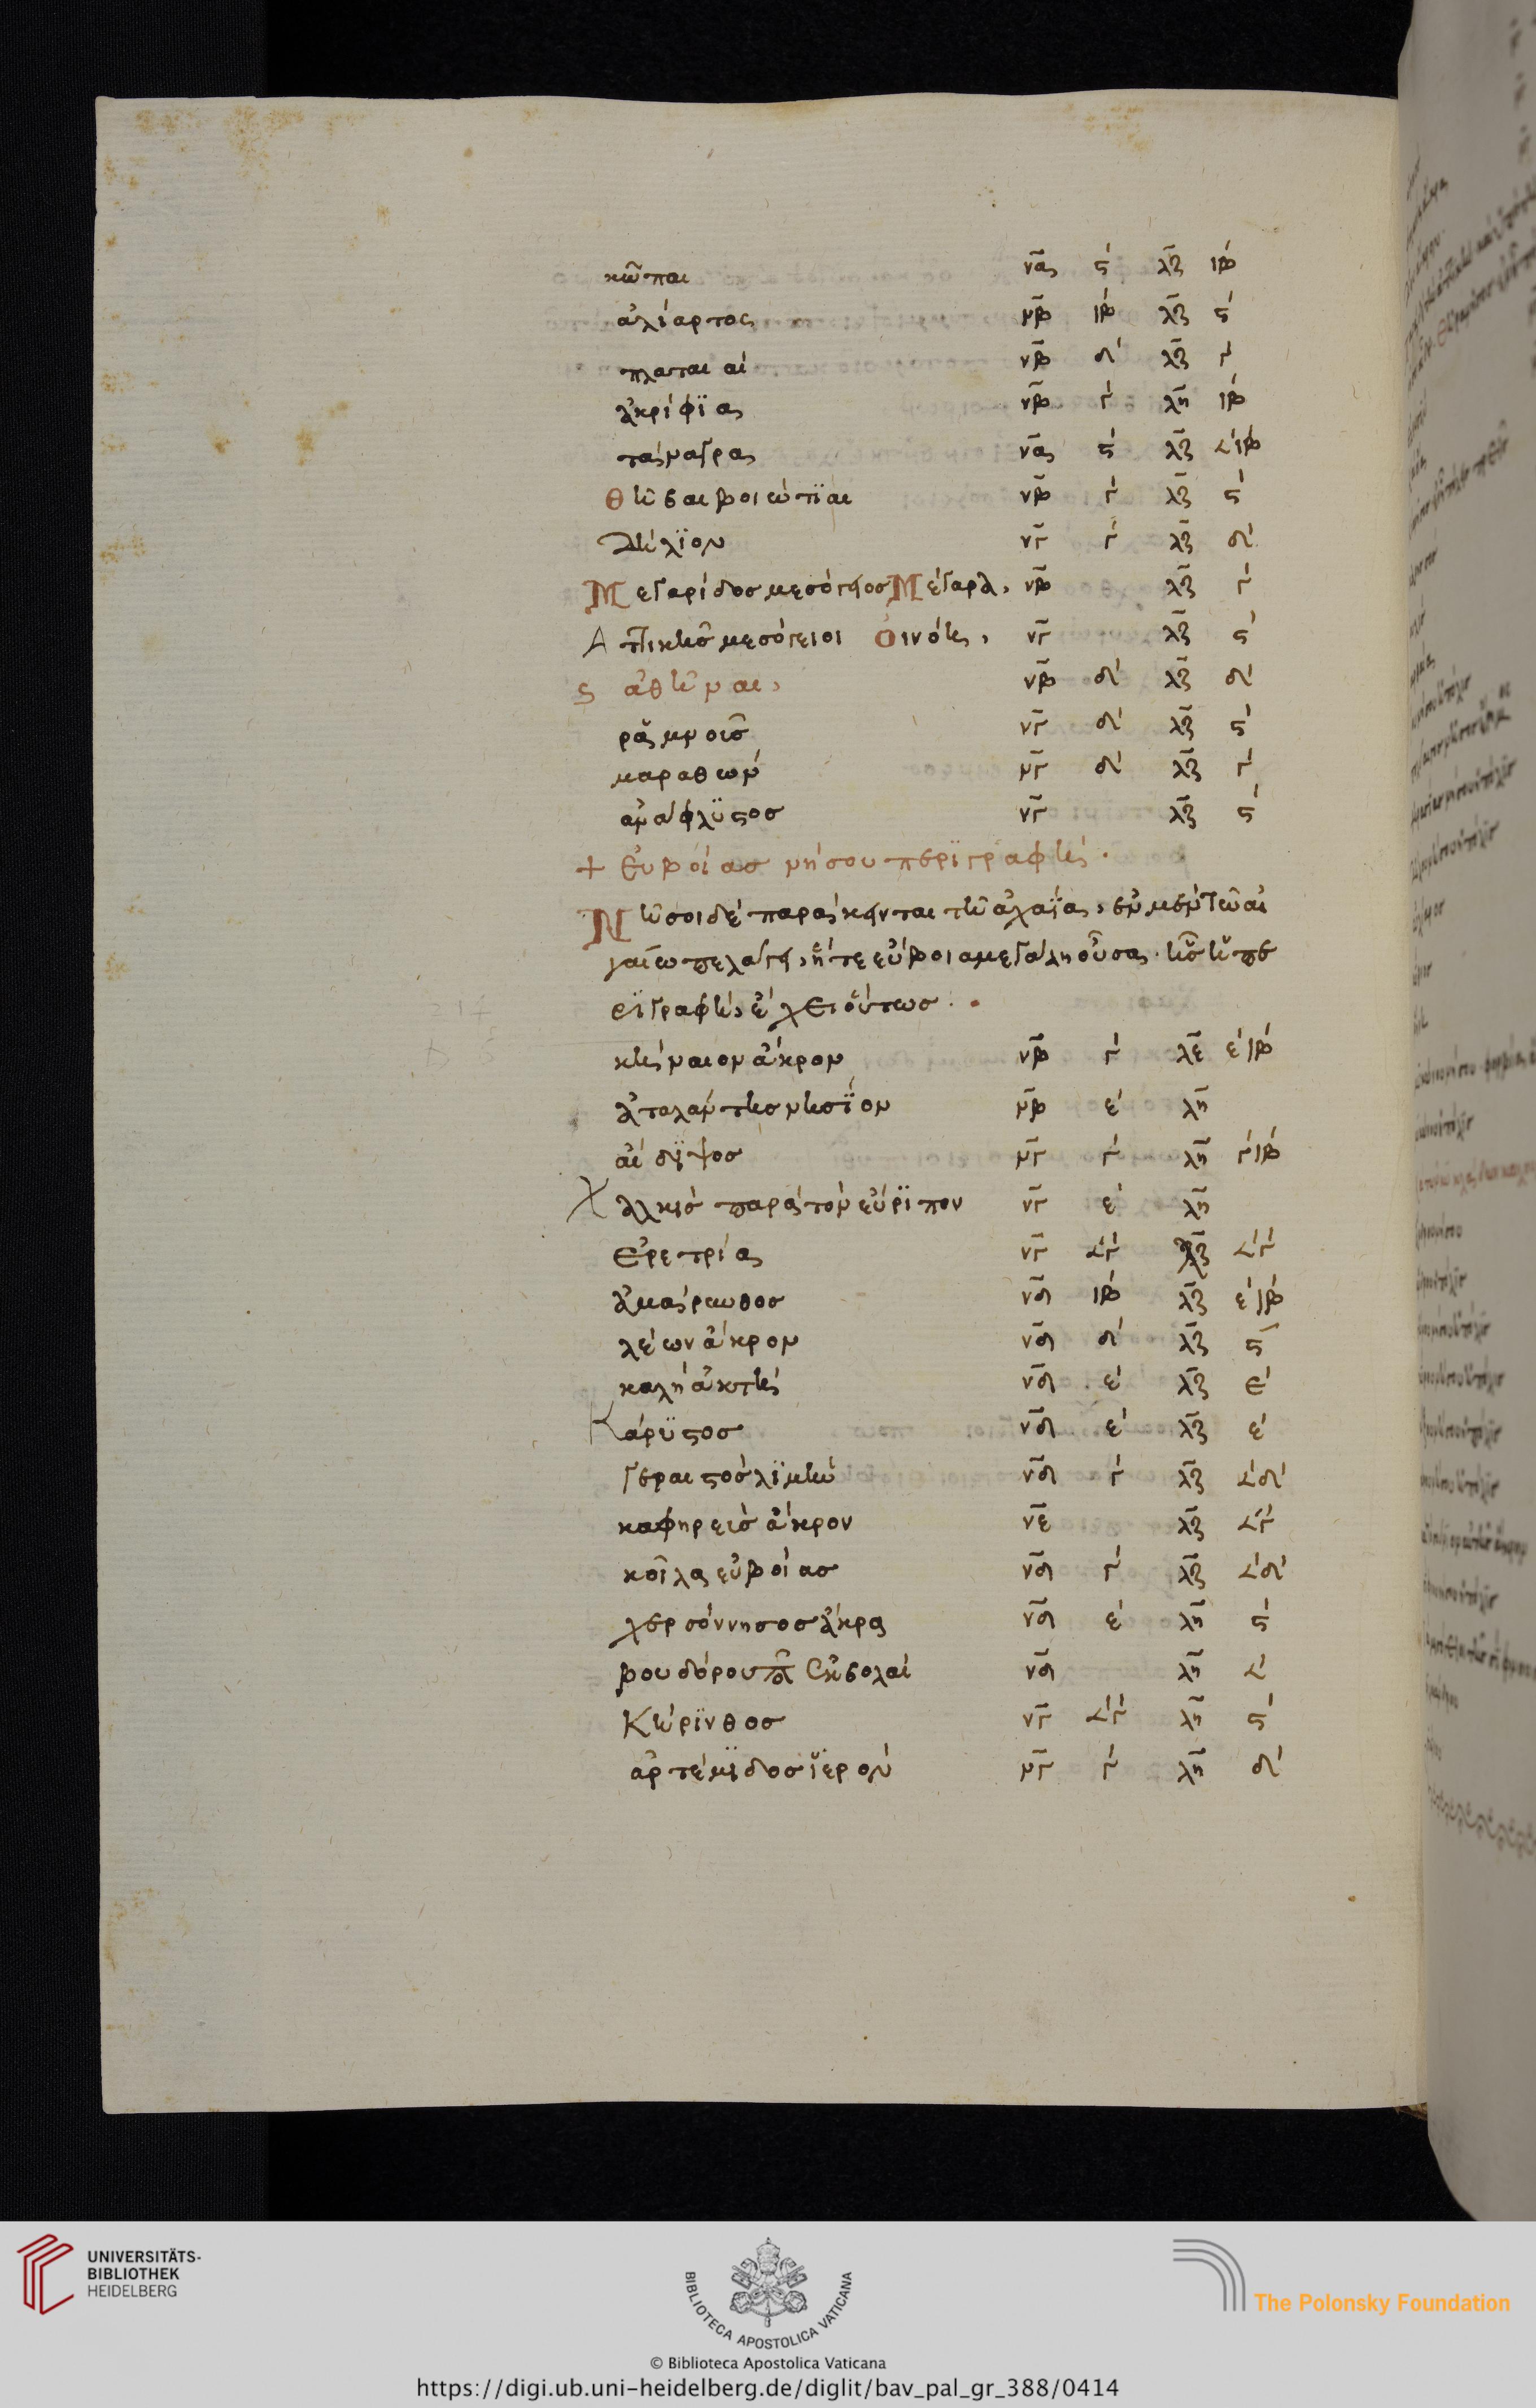 κῶπαι να ϛ´ λζ ιβ´
ἁλίαρτος νβ ιβ´ λζ ϛ´
πλαταιαί νβ δ´ λζ γ´
ἀκριφΐα νβ γ´ λη ιβ´
τάναγρα να ϛ´ λζ 𐅵´ιβ´
θῆβαι βοιώτϊαι νβ γ´ λζ ϛ´
δήλϊον νγ γ´ λζ δ´
Μεγαρίδος μεσόγειος Μέγαρα, νβ λζ γ´
Ἀττικῆσ μεσόγειοι Ὀινόη, νγ λζ ϛ´
ϛ ἀθῆναι, νβ δ´ λζ δ´
ράμνοισ νγ δ´ λζ ϛ´
μαραθών νγ δ´ λζ γ´
ἀνάφλϋστοσ νγ λζ ϛ´
+ Εὐβοίασ νήσου περϊγραφή.
Νῆσοι δέ παράκεινται τῆ ἀχαΐα, ἐν μὲν τῶ αἰ
γαίω πελάγει, ἥ τε εὔβοια μεγάλη οὖσα. ἧσ ἡ πε
ρϊγραφή, ἔχει οὕτωσ.
κήναιον ἄκρον νβ γ´ λε ε´ιβ´
ἀταλάντησ νησΐον νβ ε´ λη
αἴδϊψοσ νγ γ´ λη γ´ιβ´
Χαλκισ παρά τόν εὔρϊπον νγ ε´ λη
Ἐρετρία νγ 𐅵´γ´ λζ 𐅵´γ´
ἀμάρυνθοσ νδ ιβ´ λζ ε´ιβ´
λέων ἄκρον νδ δ´ λζ ϛ´
καλὴ ἀκτή νδ ε´ λζ ε´
Κάρϋστοσ νδ ε´ λζ ε´
Γεραιστόσ λϊμήν νδ γ´ λζ 𐅵´δ´
καφηρεὺσ ἄκρον νε λζ 𐅵´γ´
κοῖλα εὐβοίασ νδ γ´ λζ 𐅵´δ´
χερσόννησοσ ἄκρα νδ ε´ λη ϛ´
βουδόρου ποταμοῦ ἐκβολαί νδ λη 𐅵´
Κήρϊνθοσ νγ 𐅵´γ´ λη ϛ´
ἀρτέμϊδοσ ἵερον νγ γ´ λη δ´
UNIVERSITÄTS-
BIBLIOTHEK
HEIDELBERG
BIBLIOTECA APOSTOLICA VATICANA
© Biblioteca Apostolica Vaticana
The Polonsky Foundation
https://digi.ub.uni-heidelberg.de/diglit/bav_pal_gr_388/0414